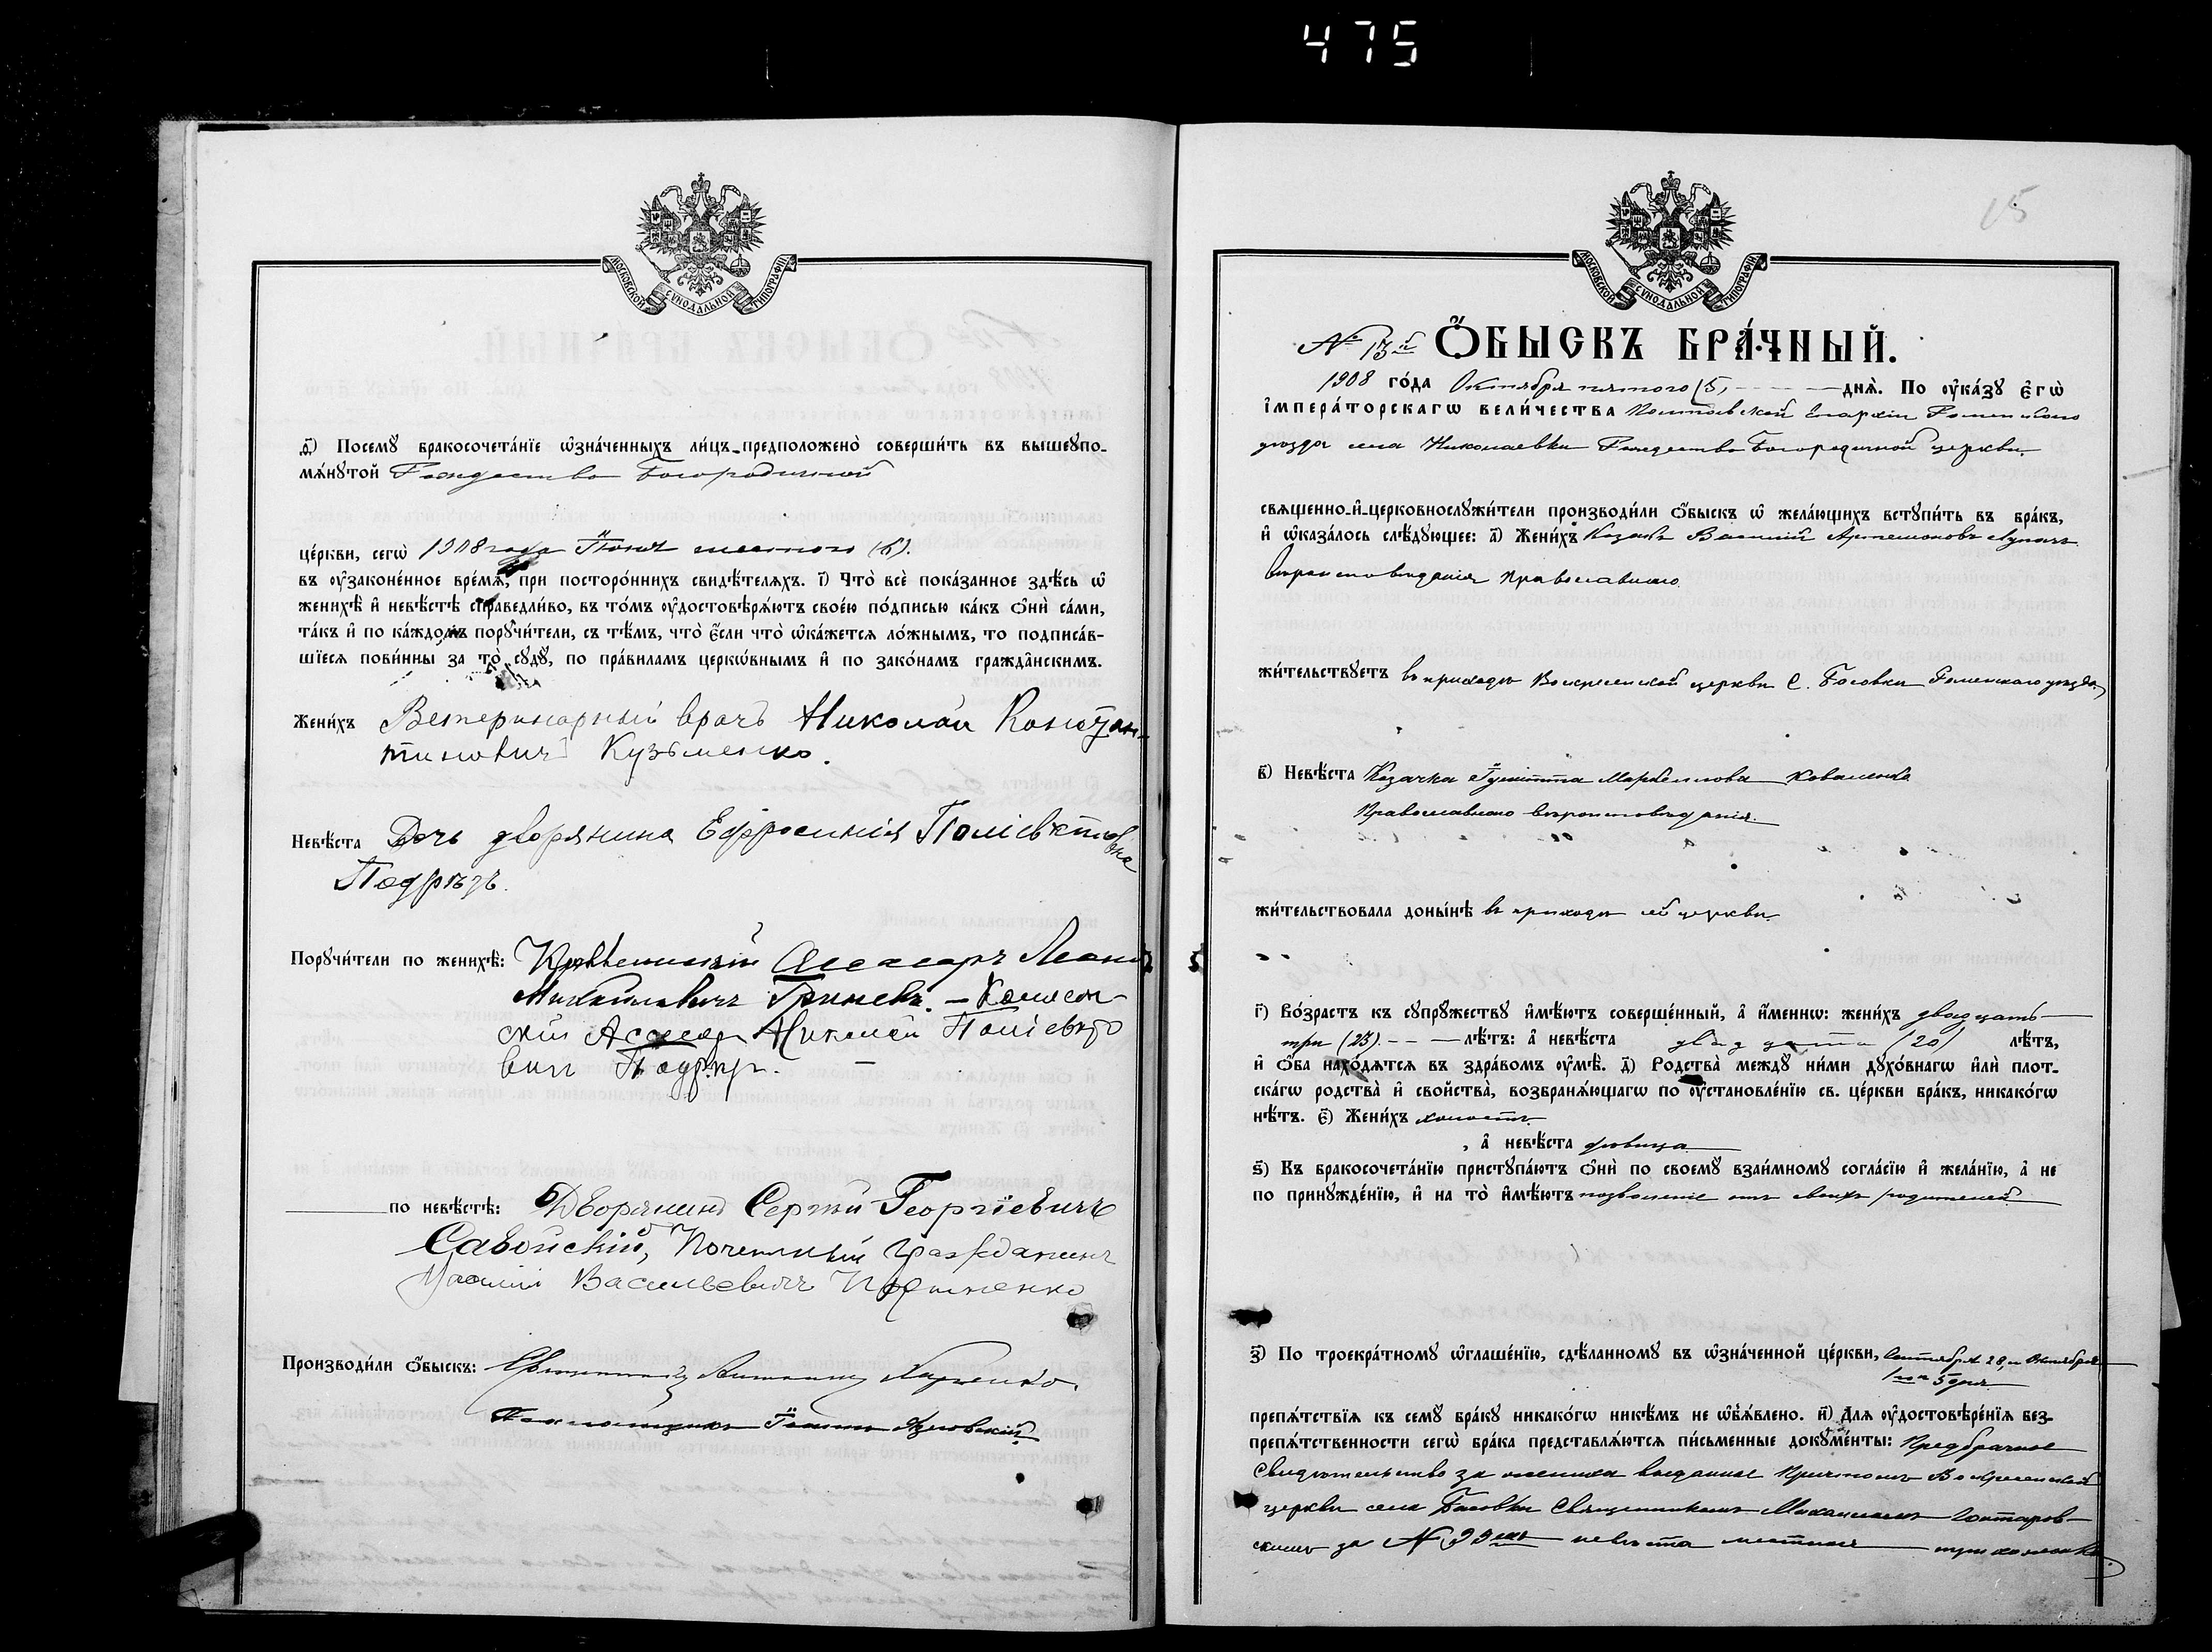 475
МОСКОВСКОЙ СУНОДАЛЬНОЙ ТИПОГРАФІИ
ѳ҃) Посемꙋ бракосочета́нїе ѡ҆зна́ченныхъ ли́цъ предположено̀ соверши́ть въ вышеꙋпо-
мѧ́нꙋтой Рождество Богородичной
це́ркви, сегѡ̀ 1908 года Іюня шестого (6).
въ ᲂу҆законе́нное вре́мѧ, при посторо́ннихъ свидѣ́телѧхъ. і҃) Что̀ всѐ пока́занное здѣ́сь ѡ҆
женихѣ̀ и҆ невѣ́стѣ справедли́во, въ то́мъ ᲂу҆достовѣрѧ́ютъ свое́ю по́дписью ка́къ ѻ҆нѝ са́ми,
та́къ и҆ по ка́ждомъ порꙋчи́тели, съ тѣ́мъ, что̀ є҆́сли что̀ ѡ҆ка́жетсѧ ло́жнымъ, то подписа́в-
шїесѧ пови́нны за то̀ сꙋдꙋ̀, по пра́виламъ церко́внымъ и҆ по зако́намъ гражда́нскимъ.
Жени́хъ Ветеринарный врачъ Николай Констан-
тиновичъ Кузьменко.
Невѣ́ста Дочь дворянина Ефросинія Поліевктовна
Подрѣзъ.
Порꙋчи́тели по женихѣ̀: Коллежскій Ассесоръ
Михайловичъ Гриневъ. —
скій Ассесор Николай Поліевкто
вич
по невѣ́стѣ: Дворянинъ Сергѣй Георгіевичъ
Савойскій, Почетный Гражданинъ
Васильевичъ
Производи́ли ѻ҆́быскъ: Священникъ
Псаломщикъ Іоаннъ
15
МОСКОВСКОЙ СУНОДАЛЬНОЙ ТИПОГРАФІИ
№ 13й Ѻ҆́БЫСКЪ БРА́ЧНЫЙ.
1908 го́да Октября пятого (5) днѧ̀. По ᲂу҆ка́зꙋ є҆гѡ̀
і҆мпера́торскагѡ вели́чества Полтавской Епархіи Роменского
уѣзда села Николаевки Рождество Богородичной церкви
свѧщенно-и҆-церковнослꙋжи́тели производи́ли ѻ҆́быскъ ѡ҆ жела́ющихъ встꙋпи́ть въ бра́къ,
и҆ ѡ҆каза́лось слѣ́дꙋющее: а҃) Жени́хъ Козакъ Василій Артемоновъ Лупачъ
вѣроисповѣданія православнаго.
жи́тельствꙋетъ въ приходѣ Воскресенской церкви с. Басовки Роменскаго уѣзда
в҃) Невѣ́ста Козачка Іулитта Маркеллова Коваленко
Православнаго вѣроисповѣданія.
жи́тельствовала доны́нѣ въ приходѣ сей церкви
г҃) Во́зрастъ къ сꙋпрꙋ́жествꙋ и҆мѣ́ютъ соверше́нный, а҆ и҆́меннѡ: жени́хъ двадцать
три (23) — лѣ́тъ: а҆ невѣ́ста двадцати (20) лѣ́тъ,
и҆ ѻ҆́ба нахо́дѧтсѧ въ здра́вомъ ᲂу҆мѣ̀. д҃) Родства̀ междꙋ ни́ми дꙋхо́внагѡ и҆лѝ плот-
ска́гѡ родства̀ и҆ свойства̀, возбранѧ́ющагѡ по ᲂу҆становле́нїю св. це́ркви бра́къ, никако́гѡ
нѣ́тъ. є҃) Жени́хъ холостъ
, а҆ невѣ́ста дѣвица
ѕ҃) Къ бракосочета́нїю пристꙋпа́ютъ ѻ҆нѝ по своемꙋ̀ взаи́мномꙋ согла́сїю и҆ жела́нїю, а҆ не
по принꙋжде́нїю, и҆ на то̀ и҆мѣ́ютъ позволеніе отъ своихъ родителей
з҃) По троекра́тномꙋ ѡ҆глаше́нїю, сдѣ́ланномꙋ въ ѡ҆зна́ченной це́ркви, Сентября 28, и Октября
1го и 5 дня
препѧ́тствїѧ къ семꙋ̀ бра́кꙋ никако́гѡ никѣ́мъ не ѡ҆б̾ѧ́влено. и҃) Длѧ ᲂу҆достовѣре́нїѧ без-
препѧ́тственности сегѡ̀ бра́ка представлѧ́ютсѧ пи́сьменные докꙋме́нты: Предбрачное
свидѣтельство за жениха выданное Причтомъ Воскресенской
церкви села Басовки Священникомъ Михаиломъ Гонтаров-
скимъ за № невѣста мѣстная прихожанка